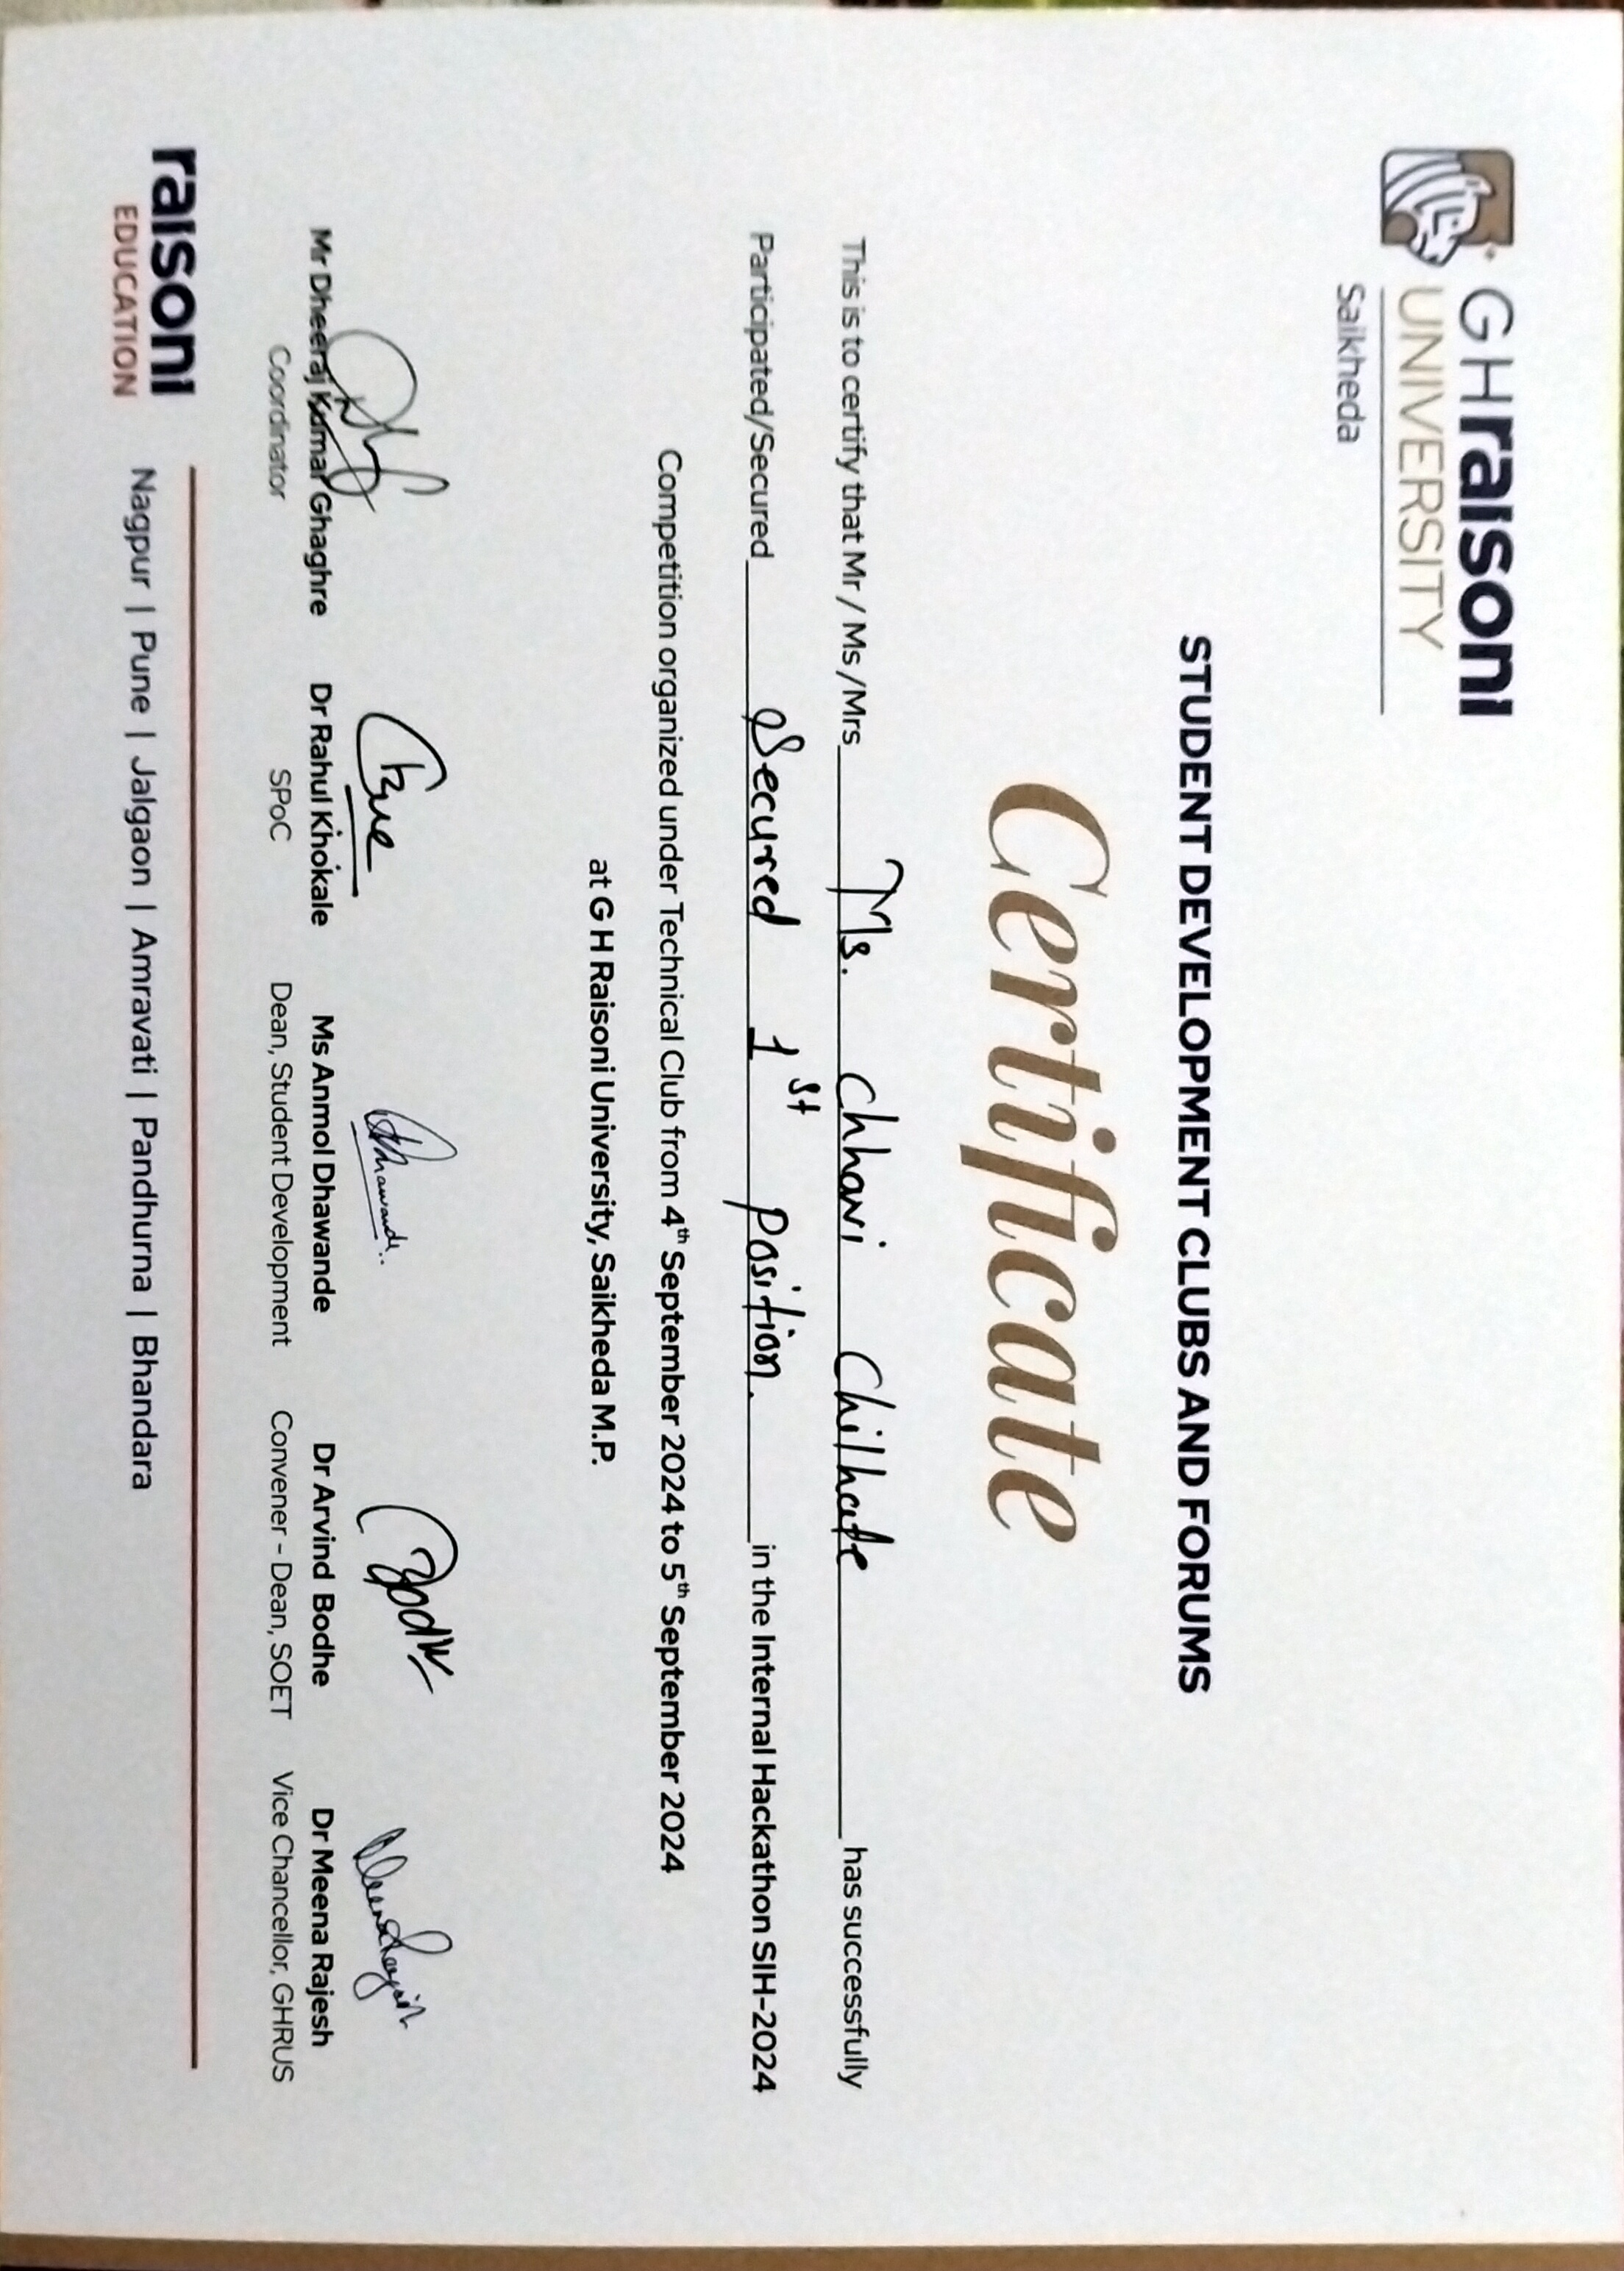 GHraisoni
UNIVERSITY
Saikheda
STUDENT DEVELOPMENT CLUBS AND FORUMS
Certificate
This is to certify that Mr / Ms /Mrs Ms. Chhavi Chilhate has successfully
Participated/Secured Secured 1st position. in the Internal Hackathon SIH-2024
Competition organized under Technical Club from 4th September 2024 to 5th September 2024
at G H Raisoni University, Saikheda M.P.
Bodhe
Mr Dheeraj Kumar Ghaghre Dr Rahul Khokale Ms Anmol Dhawande Dr Arvind Bodhe Dr Meena Rajesh
Coordinator SPoC Dean, Student Development Convener - Dean, SOET Vice Chancellor, GHRUS
raisoni
EDUCATION
Nagpur | Pune | Jalgaon | Amravati | Pandhurna | Bhandara